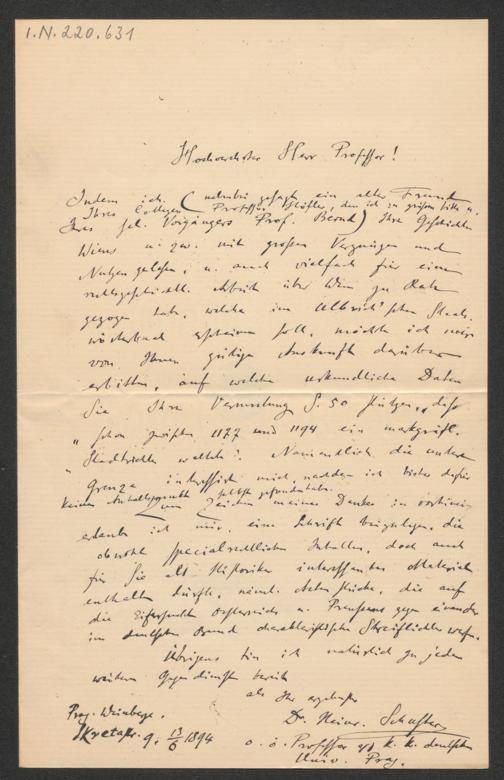 I.N. 220.631
Hochverehrter Herr Professor!
Indem ich (nebenbei gesagt ein alter Freund
Ihres Collegen Professor Höfler, den ich zu grüßen bitte u.
Ihres sel. Vorgängers Prof. Berndt) Ihre Geschichte
Wiens u. zw. mit großem Vergnügen und
Nutzen gelesen, u. auch vielfach für eine
rechtsgeschichtl. Arbeit über Wien zu Rate
gezogen habe, welche im Ulbrich'schen Staats-
wörterbuch erscheinen soll, möchte ich mir
von Ihnen gütige Auskunft darüber
erbitten, auf welche urkundliche Daten
Sie Ihre Vermutung S. 50 stützen, "daß
"schon zwischen 1177 und 1194 ein markgräfl.
"Stadtrichter waltete". Namentlich die untere
Grenze interessirt mich, nachdem ich bisher dafür
keinen Anhaltspunkt selbst gefunden habe.
Zum Zeichen meines Dankes in vorhinein
erlaube ich mir, eine Schrift beizulegen, die
obwohl specialrechtlichen Inhaltes, doch auch
für Sie als Historiker interessantes Materiale
enthalten dürfte, nämlich Actenstücke, die auf
die Eifersucht Österreichs u. Preußens gegen einander
im deutschen Bund charakteristische Streiflichter werfen.
Übrigens bin ich natürlich zu jedem
weitern Gegendienste bereit
als Ihr ergebenster
Dr. Heinr. Schuster
o. ö. Professor an d. k. k. deutschen
Univ. Prag.
Prag, Weinberge,
Skretastr. 9. 13/6 1894